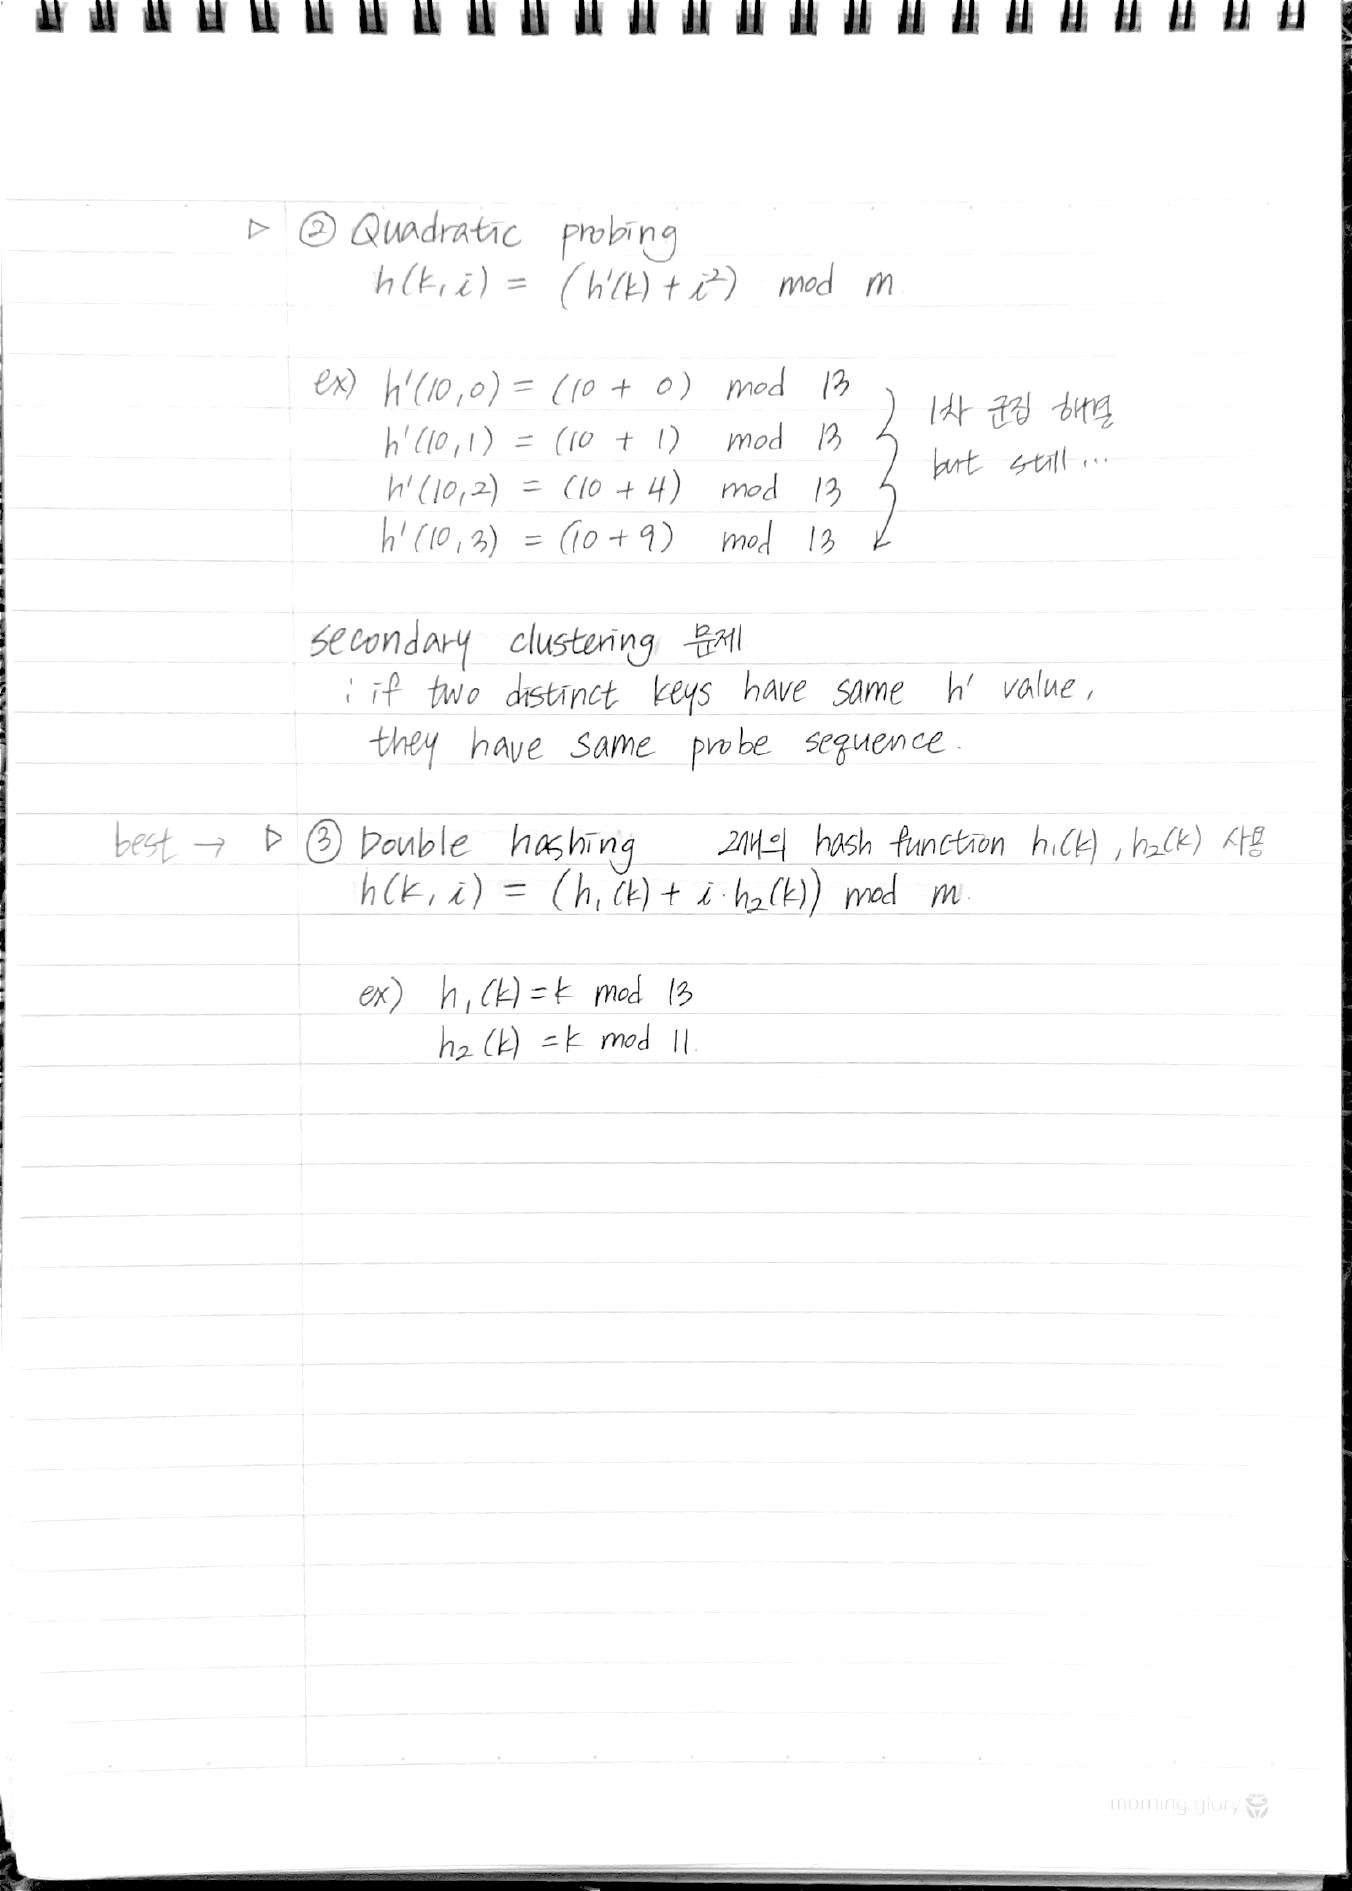 ▷ ② Quadratic probing
h(k, i) = (h'(k) + i²) mod m
ex) h'(10,0) = (10 + 0) mod 13
h'(10,1) = (10 + 1) mod 13
h'(10,2) = (10 + 4) mod 13
h'(10,3) = (10 + 9) mod 13
1차 군집 해결
but still ...
secondary clustering 문제
: if two distinct keys have same h' value,
they have same probe sequence.
best → ▷ ③ Double hashing 2개의 hash function h₁(k), h₂(k) 사용
h(k, i) = (h₁(k) + i·h₂(k)) mod m.
ex) h₁(k) = k mod 13
h₂(k) = k mod 11.
morning glory